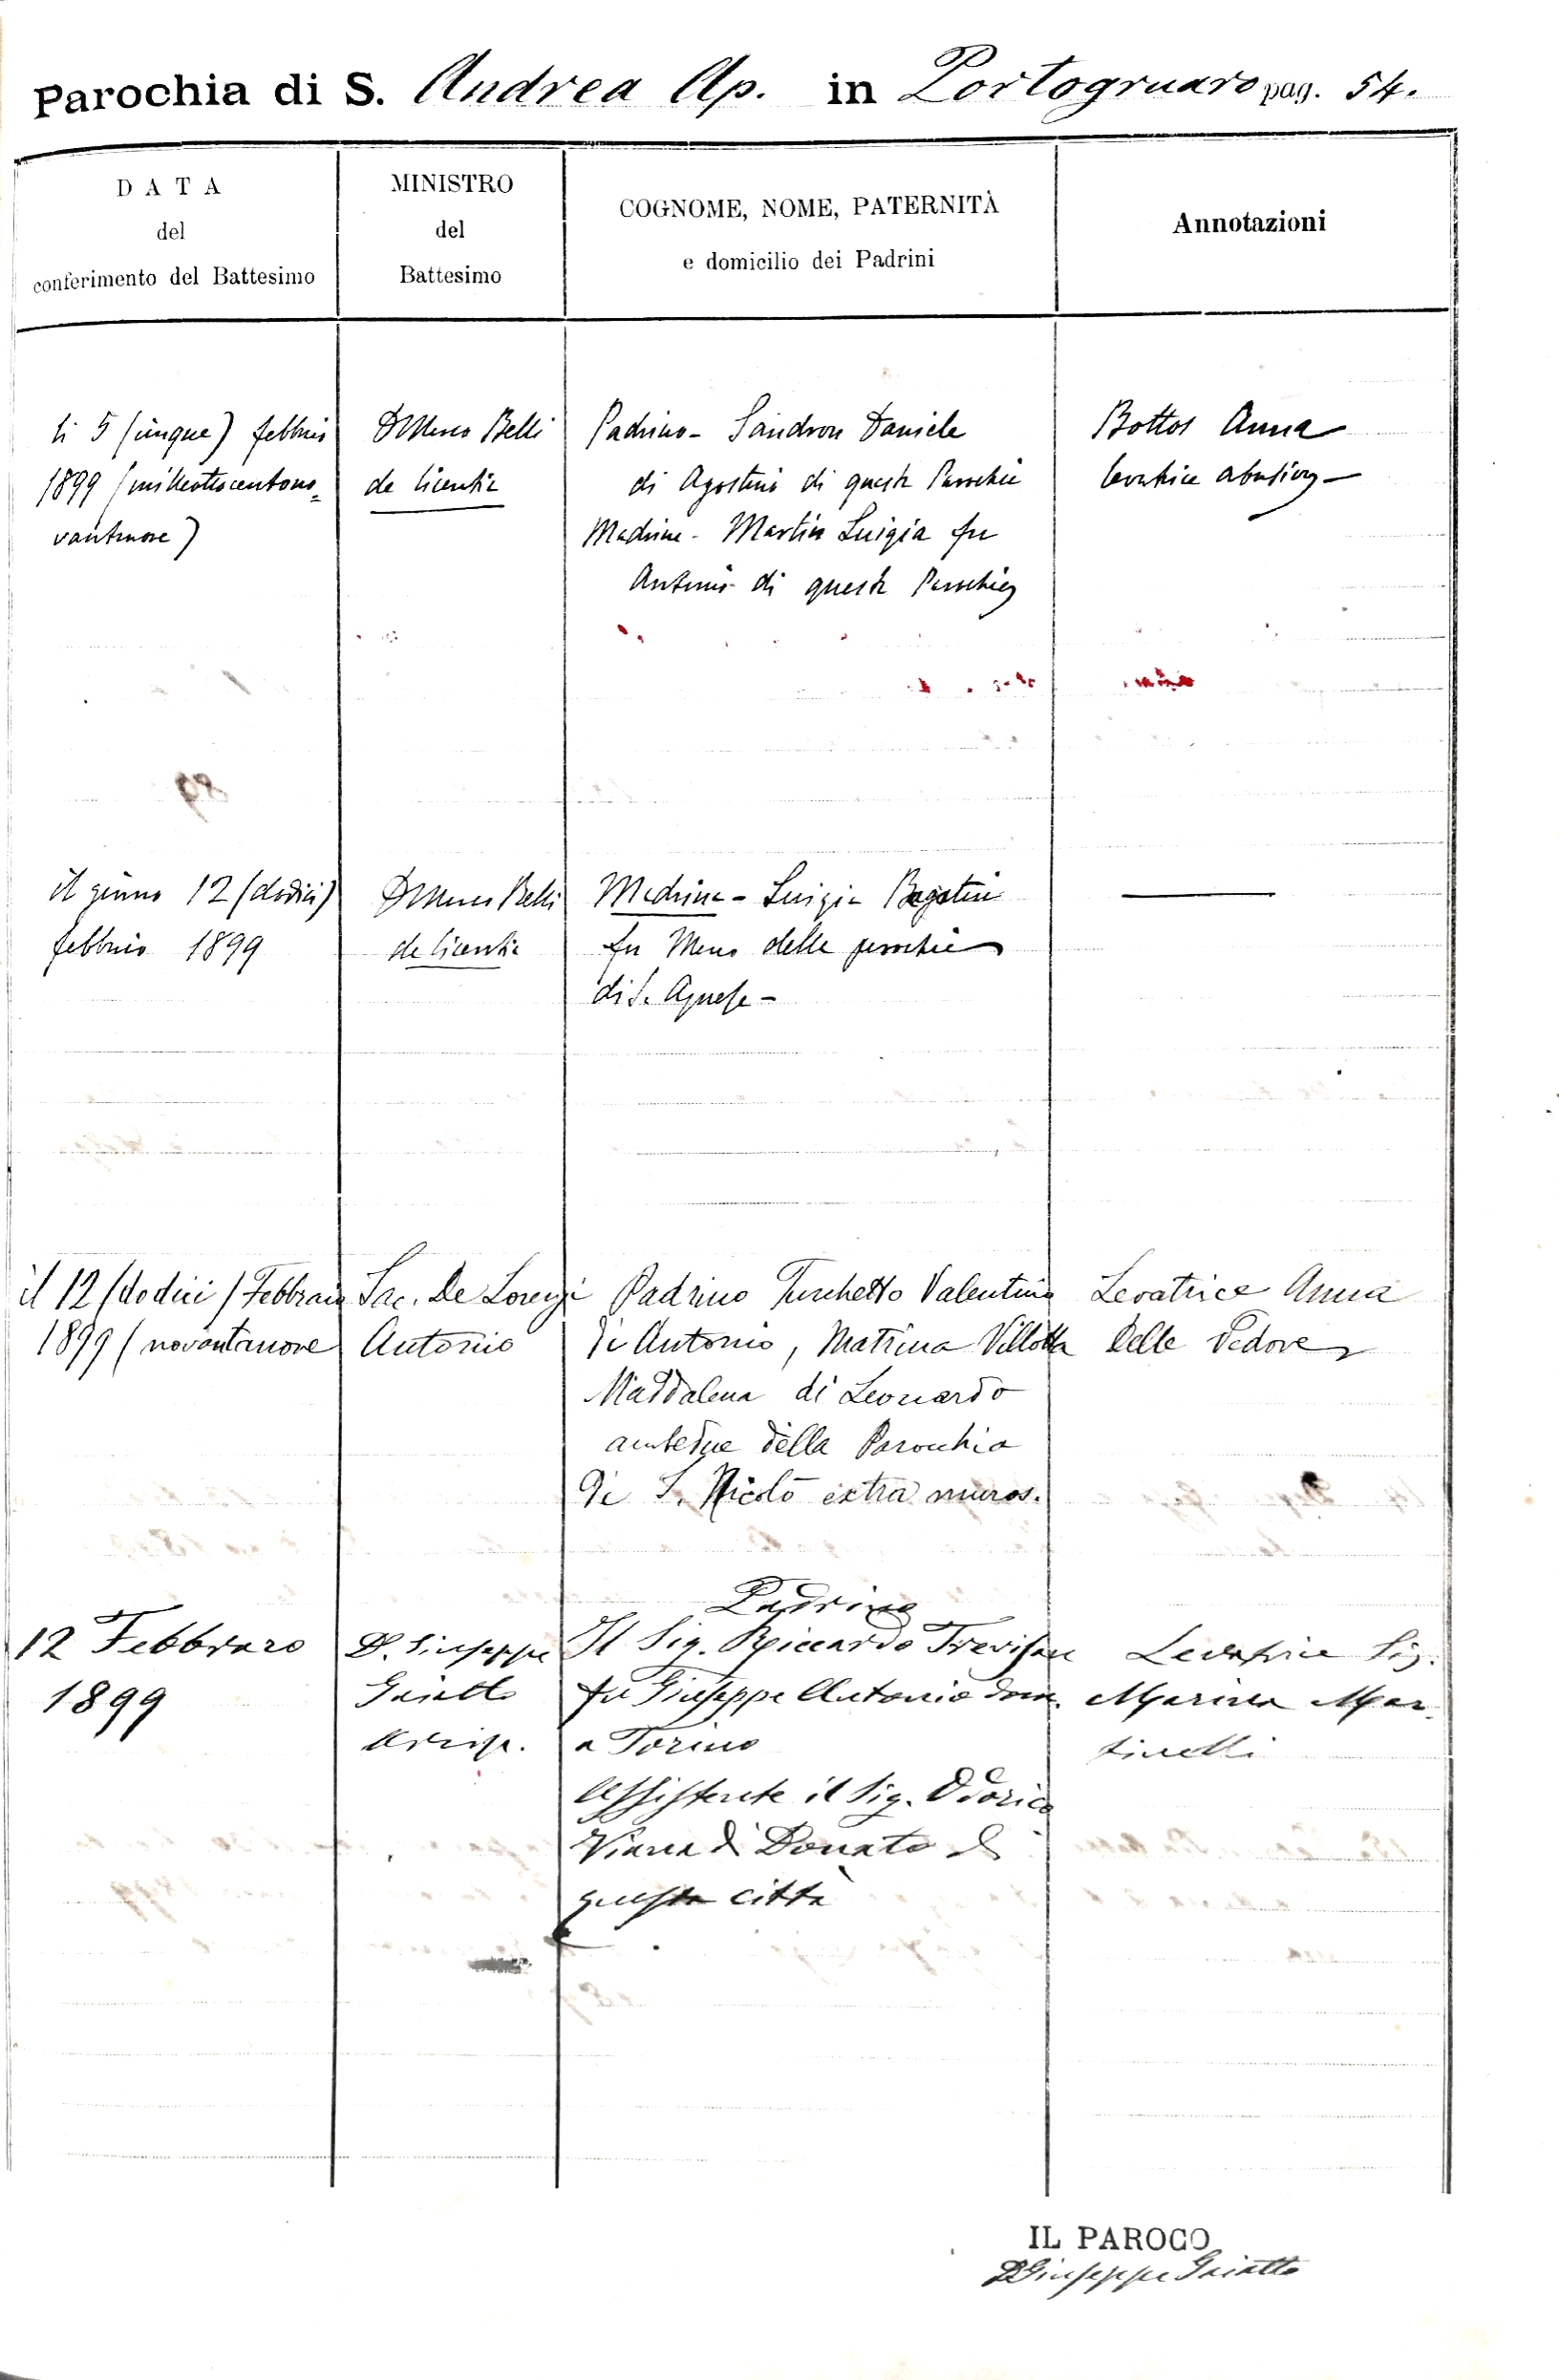 Parochia di S. Andrea Ap. in Portogruaro pag. 54.
DATA
del
conferimento del Battesimo
MINISTRO
del
Battesimo
COGNOME, NOME, PATERNITÀ
e domicilio dei Padrini
Annotazioni
li 5 (cinque) febbrio
1899 (milleottocentono=
vantanove)
Belli
de licentia
Padrino - Sandron Daniele
di Agostino di questa Parochia
Madrina - Martin Luigia fu
Antonio di questa Parochia
Bottos Anna
levatrice abusiva
il giorno 12 (dodici)
febbrio 1899
Belli
de licentia
Madrina - Luigia
fu della parochia
di S. Agnese -
il 12 (dodici) Febbraio
1899 (novantanove
Sac. De Lorenzi
Antonio
Padrino Turchetto Valentino
di Antonio, Matrina Villotta
Maddalena di Leonardo
ambedue della Parochia
di S. Nicolò extra muros.
Levatrice Anna
Delle Vedove
12 Febbraro
1899
D. Giuseppe
Gaiatto
Arcip.
Padrino
Il Sig. Riccardo Trevisan
fu Giuseppe Antonio dom.
a Torino
Assistente il Sig. Odorico
Viana di Donato di
questa città
Levatrice Sig.
Marina Mar
tinelli
IL PAROCO
D Giuseppe Gaiatto